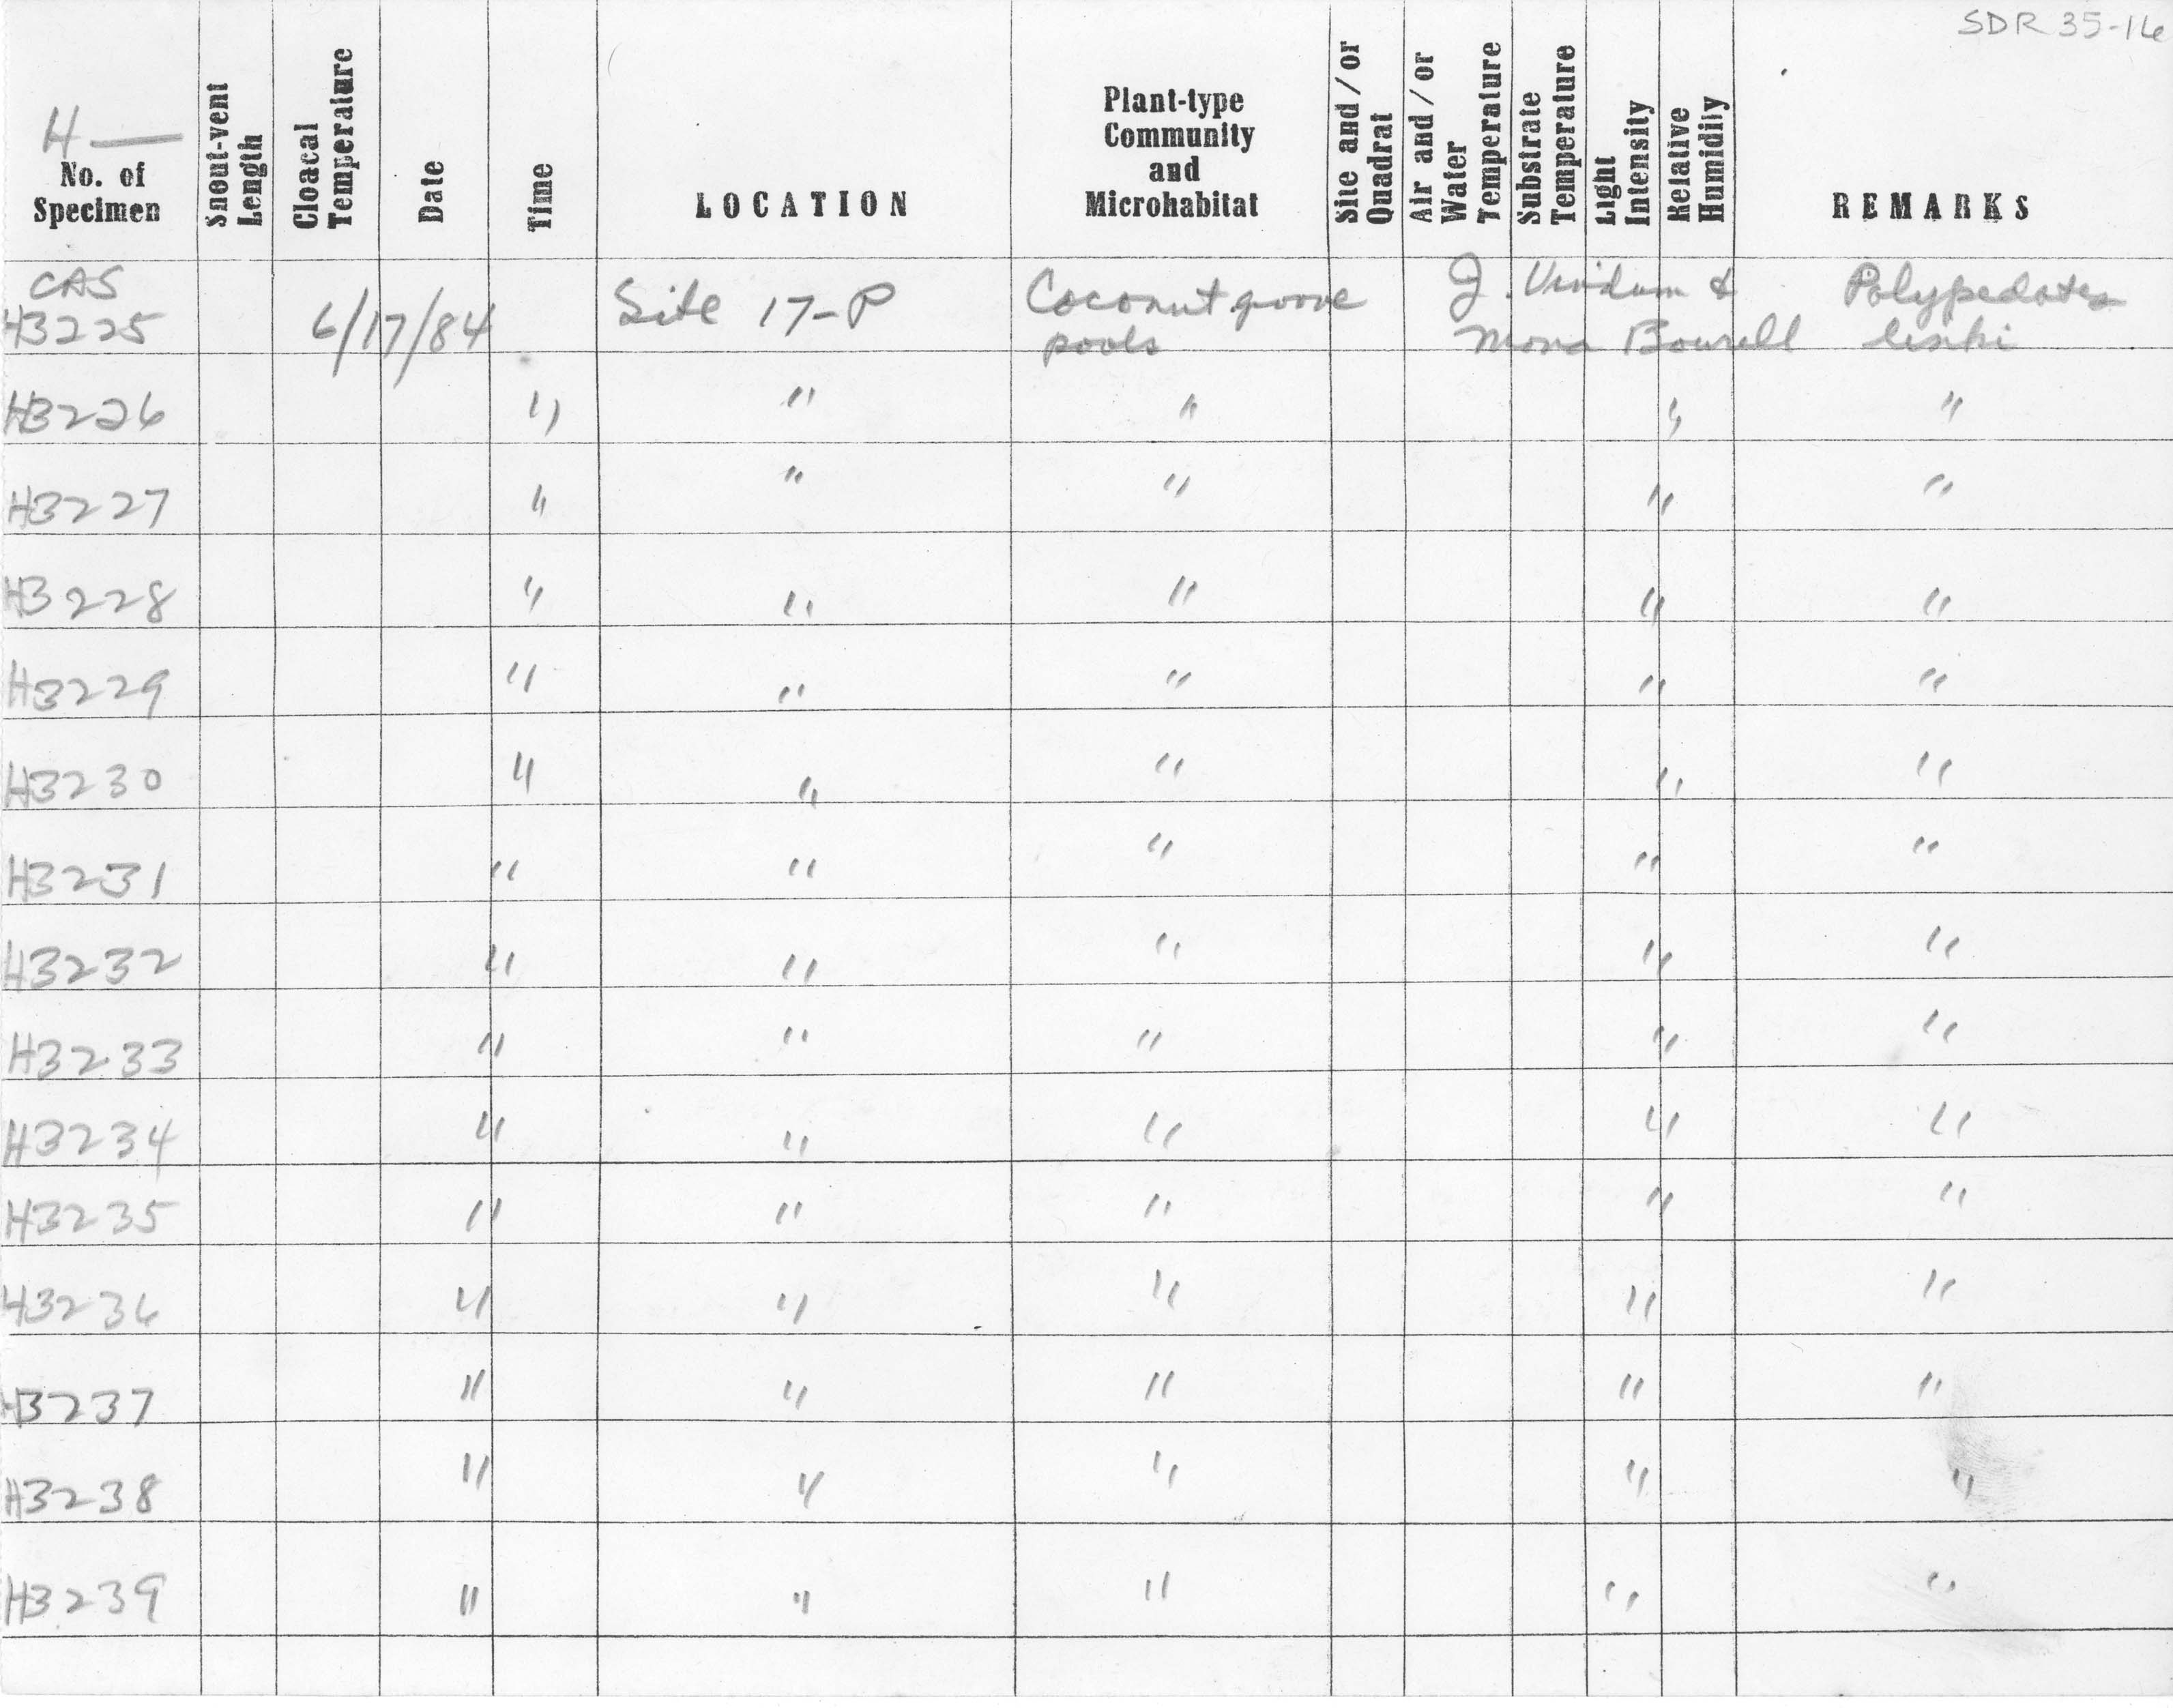 SDR 35-16
H —
No. of Specimen
Snout-vent Length
Cloacal Temperature
Date
Time
LOCATION
Plant-type Community and Microhabitat
Site and / or Quadrat
Air and / or Water Temperature
Substrate Temperature
Light Intensity
Relative Humidity
REMARKS
CAS
H3225 6/17/84 Site 17-P Coconut grove pools J. Vindum & Mona Bourell Polypedates
H3226 " " " " "
H3227 " " " " "
H3228 " " " " "
H3229 " " " " "
H3230 " " " " "
H3231 " " " " "
H3232 " " " " "
H3233 " " " " "
H3234 " " " " "
H3235 " " " " "
H3236 " " " " "
H3237 " " " " "
H3238 " " " " "
H3239 " " " " "